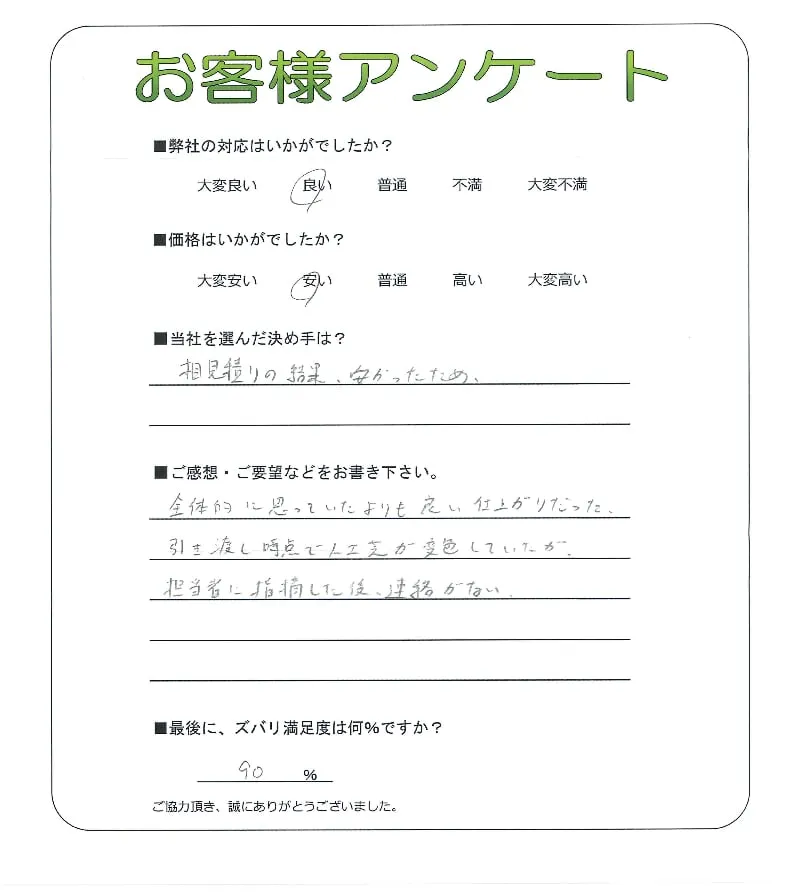 お客様アンケート
■弊社の対応はいかがでしたか？
大変良い 良い 普通 不満 大変不満
■価格はいかがでしたか？
大変安い 安い 普通 高い 大変高い
■当社を選んだ決め手は？
相見積りの結果、安かったため、
■ご感想・ご要望などをお書き下さい。
全体的に思っていたよりも良い仕上がりだった、
引き渡し時点で人工芝が変色していたが、
担当者に指摘した後、連絡がない。
■最後に、ズバリ満足度は何%ですか？
90 %
ご協力頂き、誠にありがとうございました。